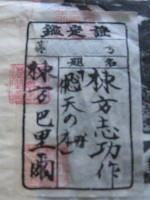 鑑定證
第 号
題名
棟方志功作
「飛天の柵」
棟方巴里爾